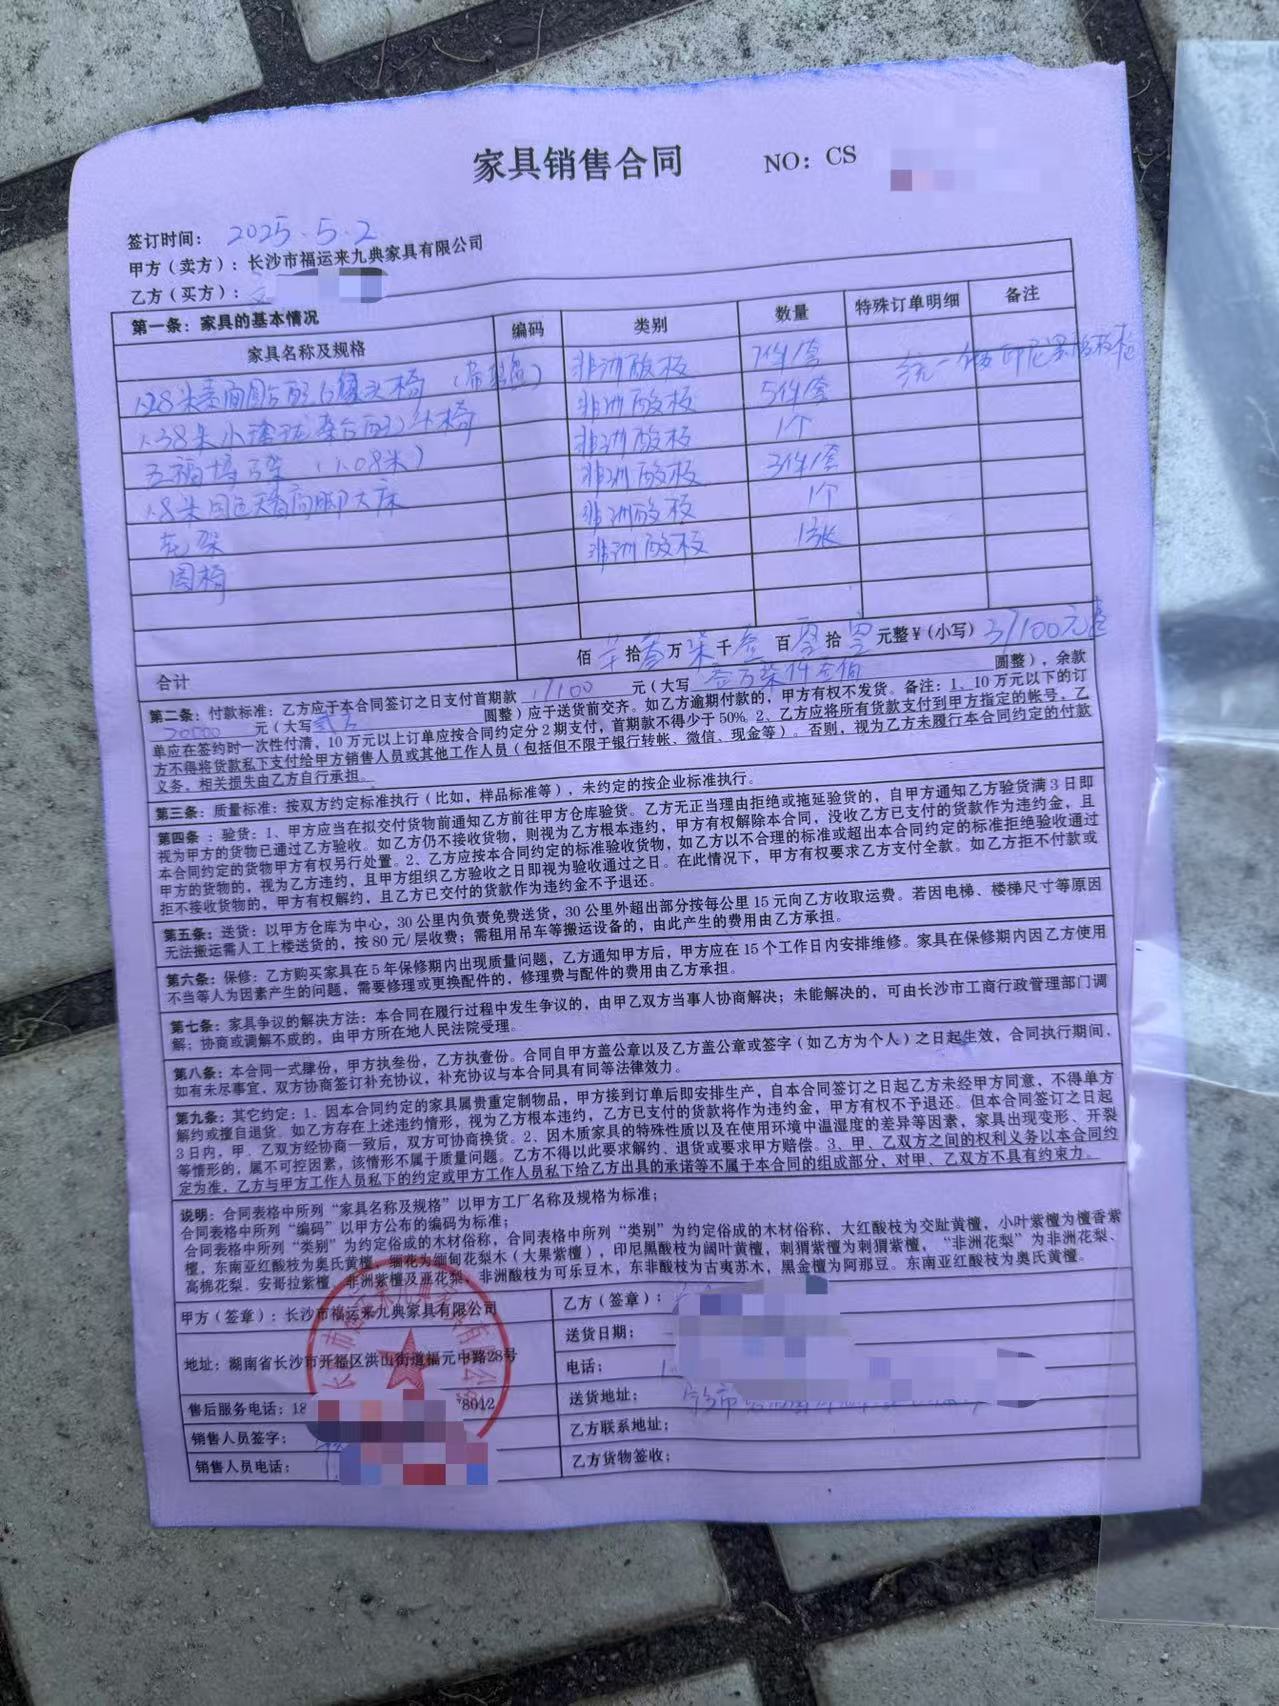 家具销售合同
NO：CS
签订时间： 2025.5.2
甲方（卖方）：长沙市福运来九典家具有限公司
乙方（买方）：
第一条：家具的基本情况
家具名称及规格 编码 类别 数量 特殊订单明细 备注
1.28米 面圆台配6 头椅 非洲酸枝 7件/套 统一 印尼黑酸枝
1.38米小 台配 椅 非洲酸枝 5件套
五福 （1.08米） 非洲酸枝 1个
1.8米 高脚大床 非洲酸枝 3件/套
花架 非洲酸枝 1个
圈椅 非洲酸枝 1张
合计 佰 拾叁万柒千壹百零拾零元整￥（小写）37100元整
第二条：付款标准：乙方应于本合同签订之日支付首期款 17100 元（大写 壹万柒仟壹佰 圆整），余款
20000 元（大写 贰万 圆整）应于送货前交齐。如乙方逾期付款的，甲方有权不发货。备注：1、10万元以下的订
单应在签约时一次性付清，10万元以上订单应按合同约定分2期支付，首期款不得少于50%。2、乙方应将所有货款支付到甲方指定的帐号，乙
方不得将货款私下支付给甲方销售人员或其他工作人员（包括但不限于银行转帐、微信、现金等）。否则，视为乙方未履行本合同约定的付款
义务，相关损失由乙方自行承担。
第三条：质量标准：按双方约定标准执行（比如，样品标准等），未约定的按企业标准执行。
第四条：验货：1、甲方应当在拟交付货物前通知乙方前往甲方仓库验货。乙方无正当理由拒绝或拖延验货的，自甲方通知乙方验货满3日即
视为甲方的货物已通过乙方验收。如乙方仍不接收货物，则视为乙方根本违约，甲方有权解除本合同，没收乙方已支付的货款作为违约金，且
本合同约定的货物甲方有权另行处置。2、乙方应按本合同约定的标准验收货物，如乙方以不合理的标准或超出本合同约定的标准拒绝验收通过
甲方的货物的，视为乙方违约，且甲方组织乙方验收之日即视为验收通过之日。在此情况下，甲方有权要求乙方支付全款。如乙方拒不付款或
拒不接收货物的，甲方有权解约，且乙方已交付的货款作为违约金不予退还。
第五条：送货：以甲方仓库为中心，30公里内负责免费送货，30公里外超出部分按每公里15元向乙方收取运费。若因电梯、楼梯尺寸等原因
无法搬运需人工上楼送货的，按80元/层收费；需租用吊车等搬运设备的，由此产生的费用由乙方承担。
第六条：保修：乙方购买家具在5年保修期内出现质量问题，乙方通知甲方后，甲方应在15个工作日内安排维修。家具在保修期内因乙方使用
不当等人为因素产生的问题，需要修理或更换配件的，修理费与配件的费用由乙方承担。
第七条：家具争议的解决方法：本合同在履行过程中发生争议的，由甲乙双方当事人协商解决；未能解决的，可由长沙市工商行政管理部门调
解；协商或调解不成的，由甲方所在地人民法院受理。
第八条：本合同一式肆份，甲方执叁份，乙方执壹份。合同自甲方盖公章以及乙方盖公章或签字（如乙方为个人）之日起生效，合同执行期间，
如有未尽事宜，双方协商签订补充协议，补充协议与本合同具有同等法律效力。
第九条：其它约定：1、因本合同约定的家具属贵重定制物品，甲方接到订单后即安排生产，自本合同签订之日起乙方未经甲方同意，不得单方
解约或擅自退货。如乙方存在上述违约情形，视为乙方根本违约，乙方已支付的货款将作为违约金，甲方有权不予退还。但本合同签订之日起
3日内，甲、乙双方经协商一致后，双方可协商换货。2、因木质家具的特殊性质以及在使用环境中温湿度的差异等因素，家具出现变形、开裂
等情形的，属不可控因素，该情形不属于质量问题。乙方不得以此要求解约、退货或要求甲方赔偿。3、甲、乙双方之间的权利义务以本合同约
定为准，乙方与甲方工作人员私下的约定或甲方工作人员私下给乙方出具的承诺等不属于本合同的组成部分，对甲、乙双方不具有约束力。
说明：合同表格中所列“家具名称及规格”以甲方工厂名称及规格为标准；
合同表格中所列“编码”以甲方公布的编码为标准；
合同表格中所列“类别”为约定俗成的木材俗称，合同表格中所列“类别”为约定俗成的木材俗称，大红酸枝为交趾黄檀，小叶紫檀为檀香紫
檀，东南亚红酸枝为奥氏黄檀，缅花为缅甸花梨木（大果紫檀），印尼黑酸枝为阔叶黄檀，刺猬紫檀为刺猬紫檀，“非洲花梨”为非洲花梨、
高棉花梨．安哥拉紫檀．非洲紫檀及亚花梨，非洲酸枝为可乐豆木，东非酸枝为古夷苏木，黑金檀为阿那豆。东南亚红酸枝为奥氏黄檀。
甲方（签章）：长沙市福运来九典家具有限公司 乙方（签章）：
地址：湖南省长沙市开福区洪山街道福元中路28号 送货日期：
电话：
售后服务电话：18 78012 送货地址：
销售人员签字： 乙方联系地址：
销售人员电话： 乙方货物签收：